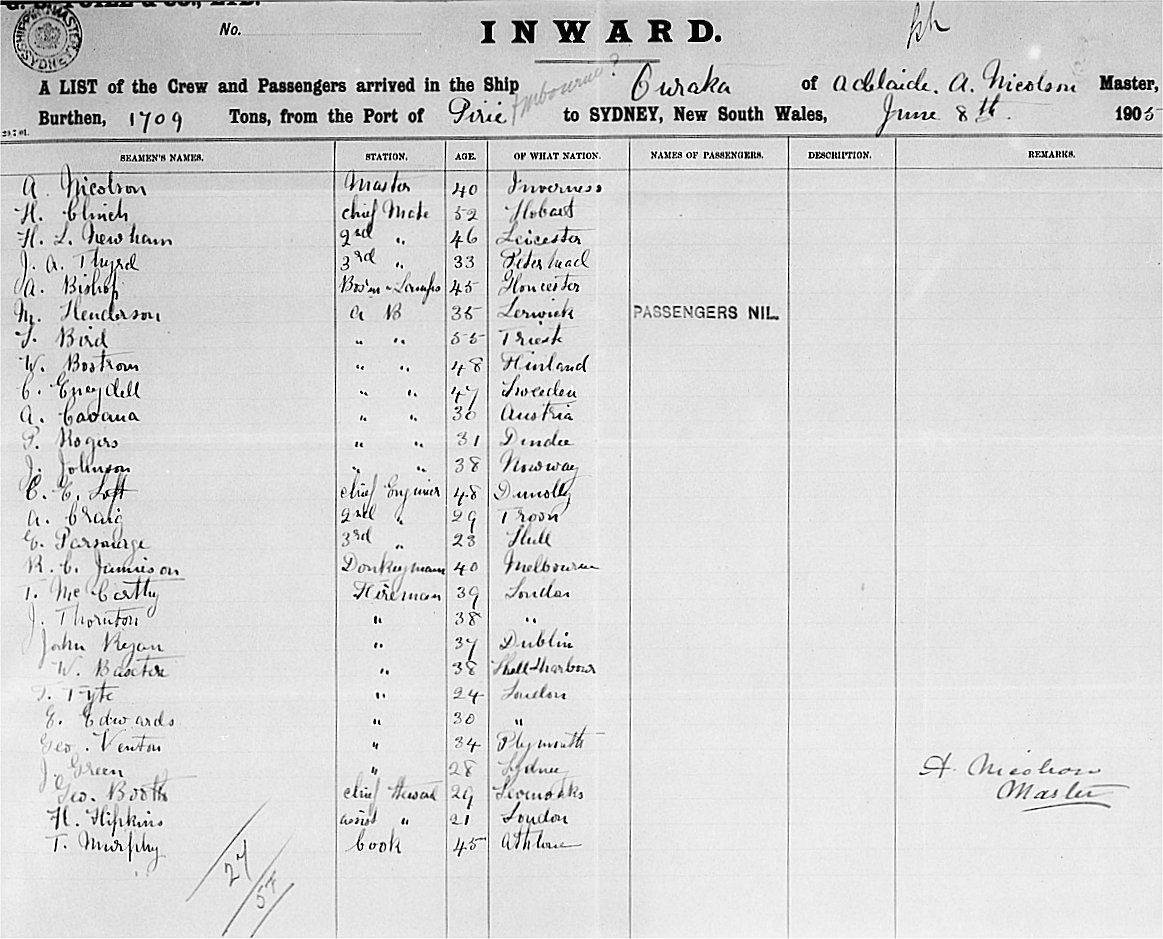 & CO., LTD.
SHIPPING MASTER SYDNEY
No.
INWARD.
A LIST of the Crew and Passengers arrived in the Ship Ouraka of Adelaide. A. Nicolson Master,
Burthen, 1709 Tons, from the Port of Pirie to SYDNEY, New South Wales, June 8th. 1905
29.7.01.
SEAMEN'S NAMES. STATION. AGE. OF WHAT NATION. NAMES OF PASSENGERS. DESCRIPTION. REMARKS.
A. Nicolson Master 40 Inverness
H. Clinch chief Mate 52 Hobart
H. L. Newham 2nd " 46 Leicester
J. A. Thyrd 3rd " 33 Peterhead
A. Bishop Bos'n & Lamps 45 Gloucester
M. Henderson A B 35 Lerwick PASSENGERS NIL.
Bird " " 55 Trieste
W. Bostrom " " 48 Finland
C. " " 47 Sweeden
A. Cavana " " 30 Austria
P. Rogers " " 31 Dundee
J. Johnson " " 38 Norway
C. C. Loft chief Engineer 48 Dunolly
A. Craig 2nd " 29 Troon
E. 3rd " 23 Hull
R. C. Jamieson Donkeyman 40 Melbourne
T. McCarthy Fireman 39 London
J. Thornton " 38 "
John Regan " 37 Dublin
W. Baxter " 38 Shellharbour
Tyte " 24 London
E. Edwards " 30 "
Geo. Venton " 34 Plymouth
J. Green " 28 Sydney
Geo. Booth chief Steward 29 Sevenoaks
A. Nicolson
Master
H. Hipkins assist " 21 London
T. Murphy Cook 45 Athlone
27
54